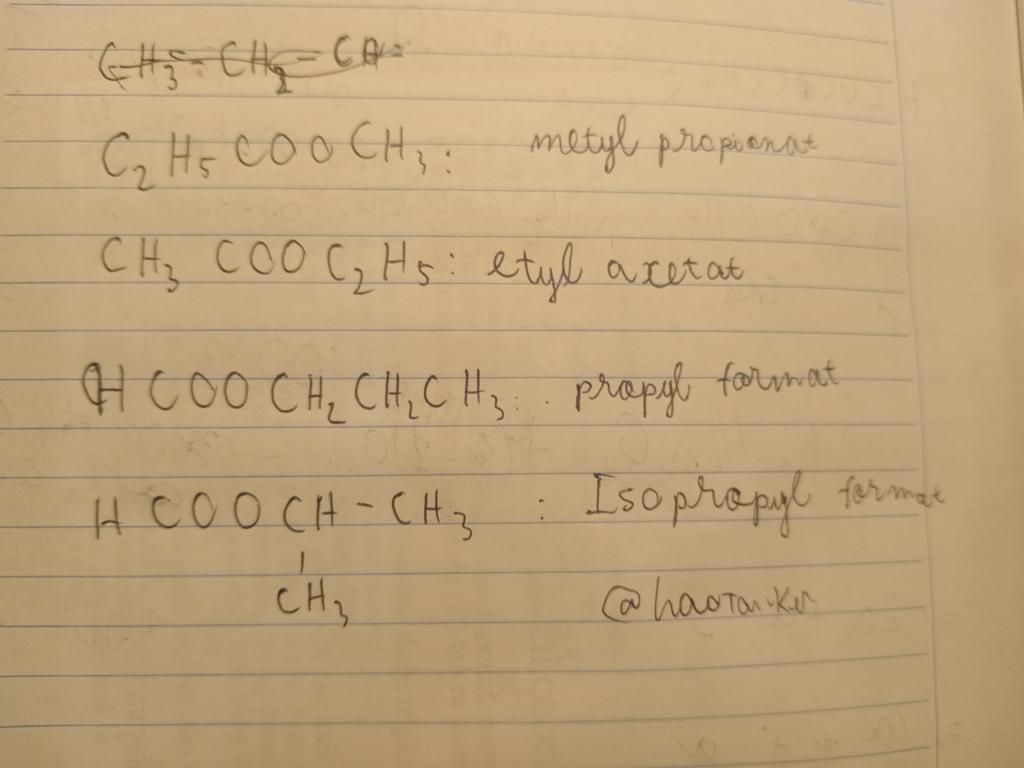 C₂H₅COOCH₃: metyl propionat
CH₃COOC₂H₅: etyl axetat
HCOOCH₂CH₂CH₃: propyl format
HCOOCH-CH₃ : Isopropyl format
CH₃